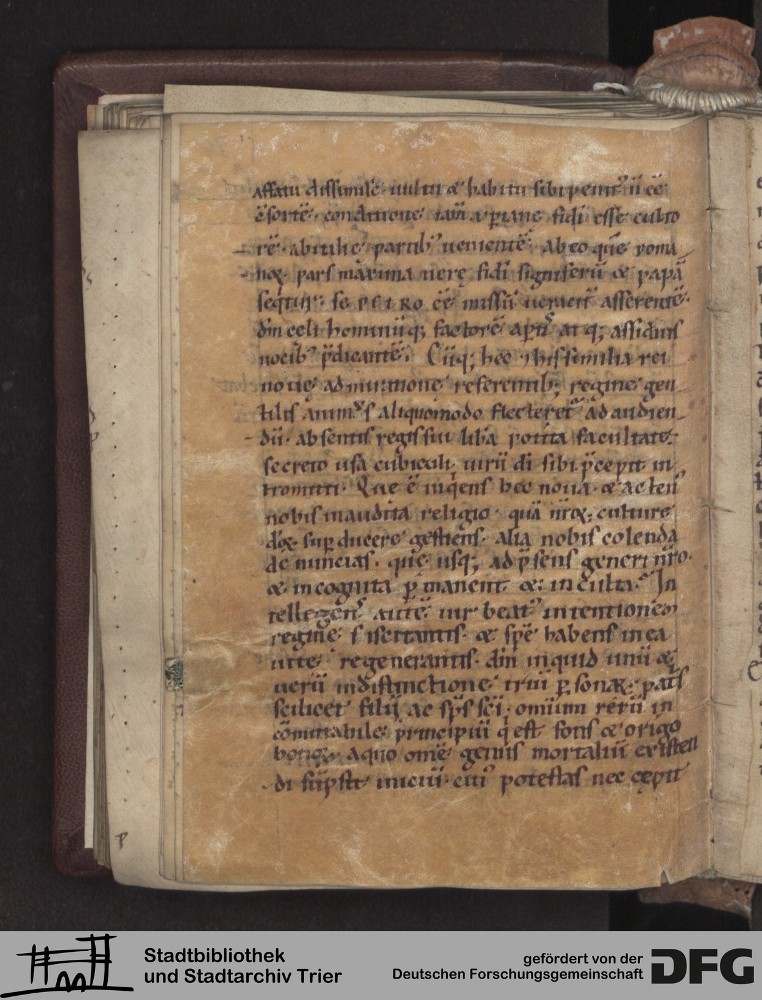 affatu dissimilē· uultu & habitu sibi penit⁹ ii cē
ēsortē· conditione iam
rē· abitalie partib⁹ uenientē· ab eo quē roma
noꝝ pars maxima uere fidi signiferū & papā
se PETRO eē missū asserentē·
dm̄ celi hominūq; factorē ap̄t at q; assiduis
uocib⁹ p̄dicantē. Cūq; hec
admiratione referentib; regine gen
tilis anim⁹ aliquomodo flecteret᷑ ad audien
dū· absentis regis sui potita facultate·
secreto usa cubiculi· uirū di sibi p̄cepit in
tromitti· Que ē inqens hec noua & acten⁹
nobis inaudita religio· quā nr̄oꝝ culture
doꝝ sup ducere gestiens· alia nobis colenda
de nuncias· que usq; ad p̄sens generi nr̄o·
& incognita ꝑmanent· &· inculta· In
tellegens autē uir beat⁹ intentionem
regine sciscitantis· & spē habens in ea
uite regenerantis· dm̄ inquid unū &
uerū indistinctione triū ꝑsonaꝝ· patris
scilicet filii ac sp̄s sc̄i· omium rerū in
cōmutabile principiū q̇ est fons & origo
bonoꝝ· a quo omē genus mortaliū existen
di sūpsit iniciū· cui⁹ potestas nec cępit
P
Stadtbibliothek
und Stadtarchiv Trier
gefördert von der
Deutschen Forschungsgemeinschaft
DFG